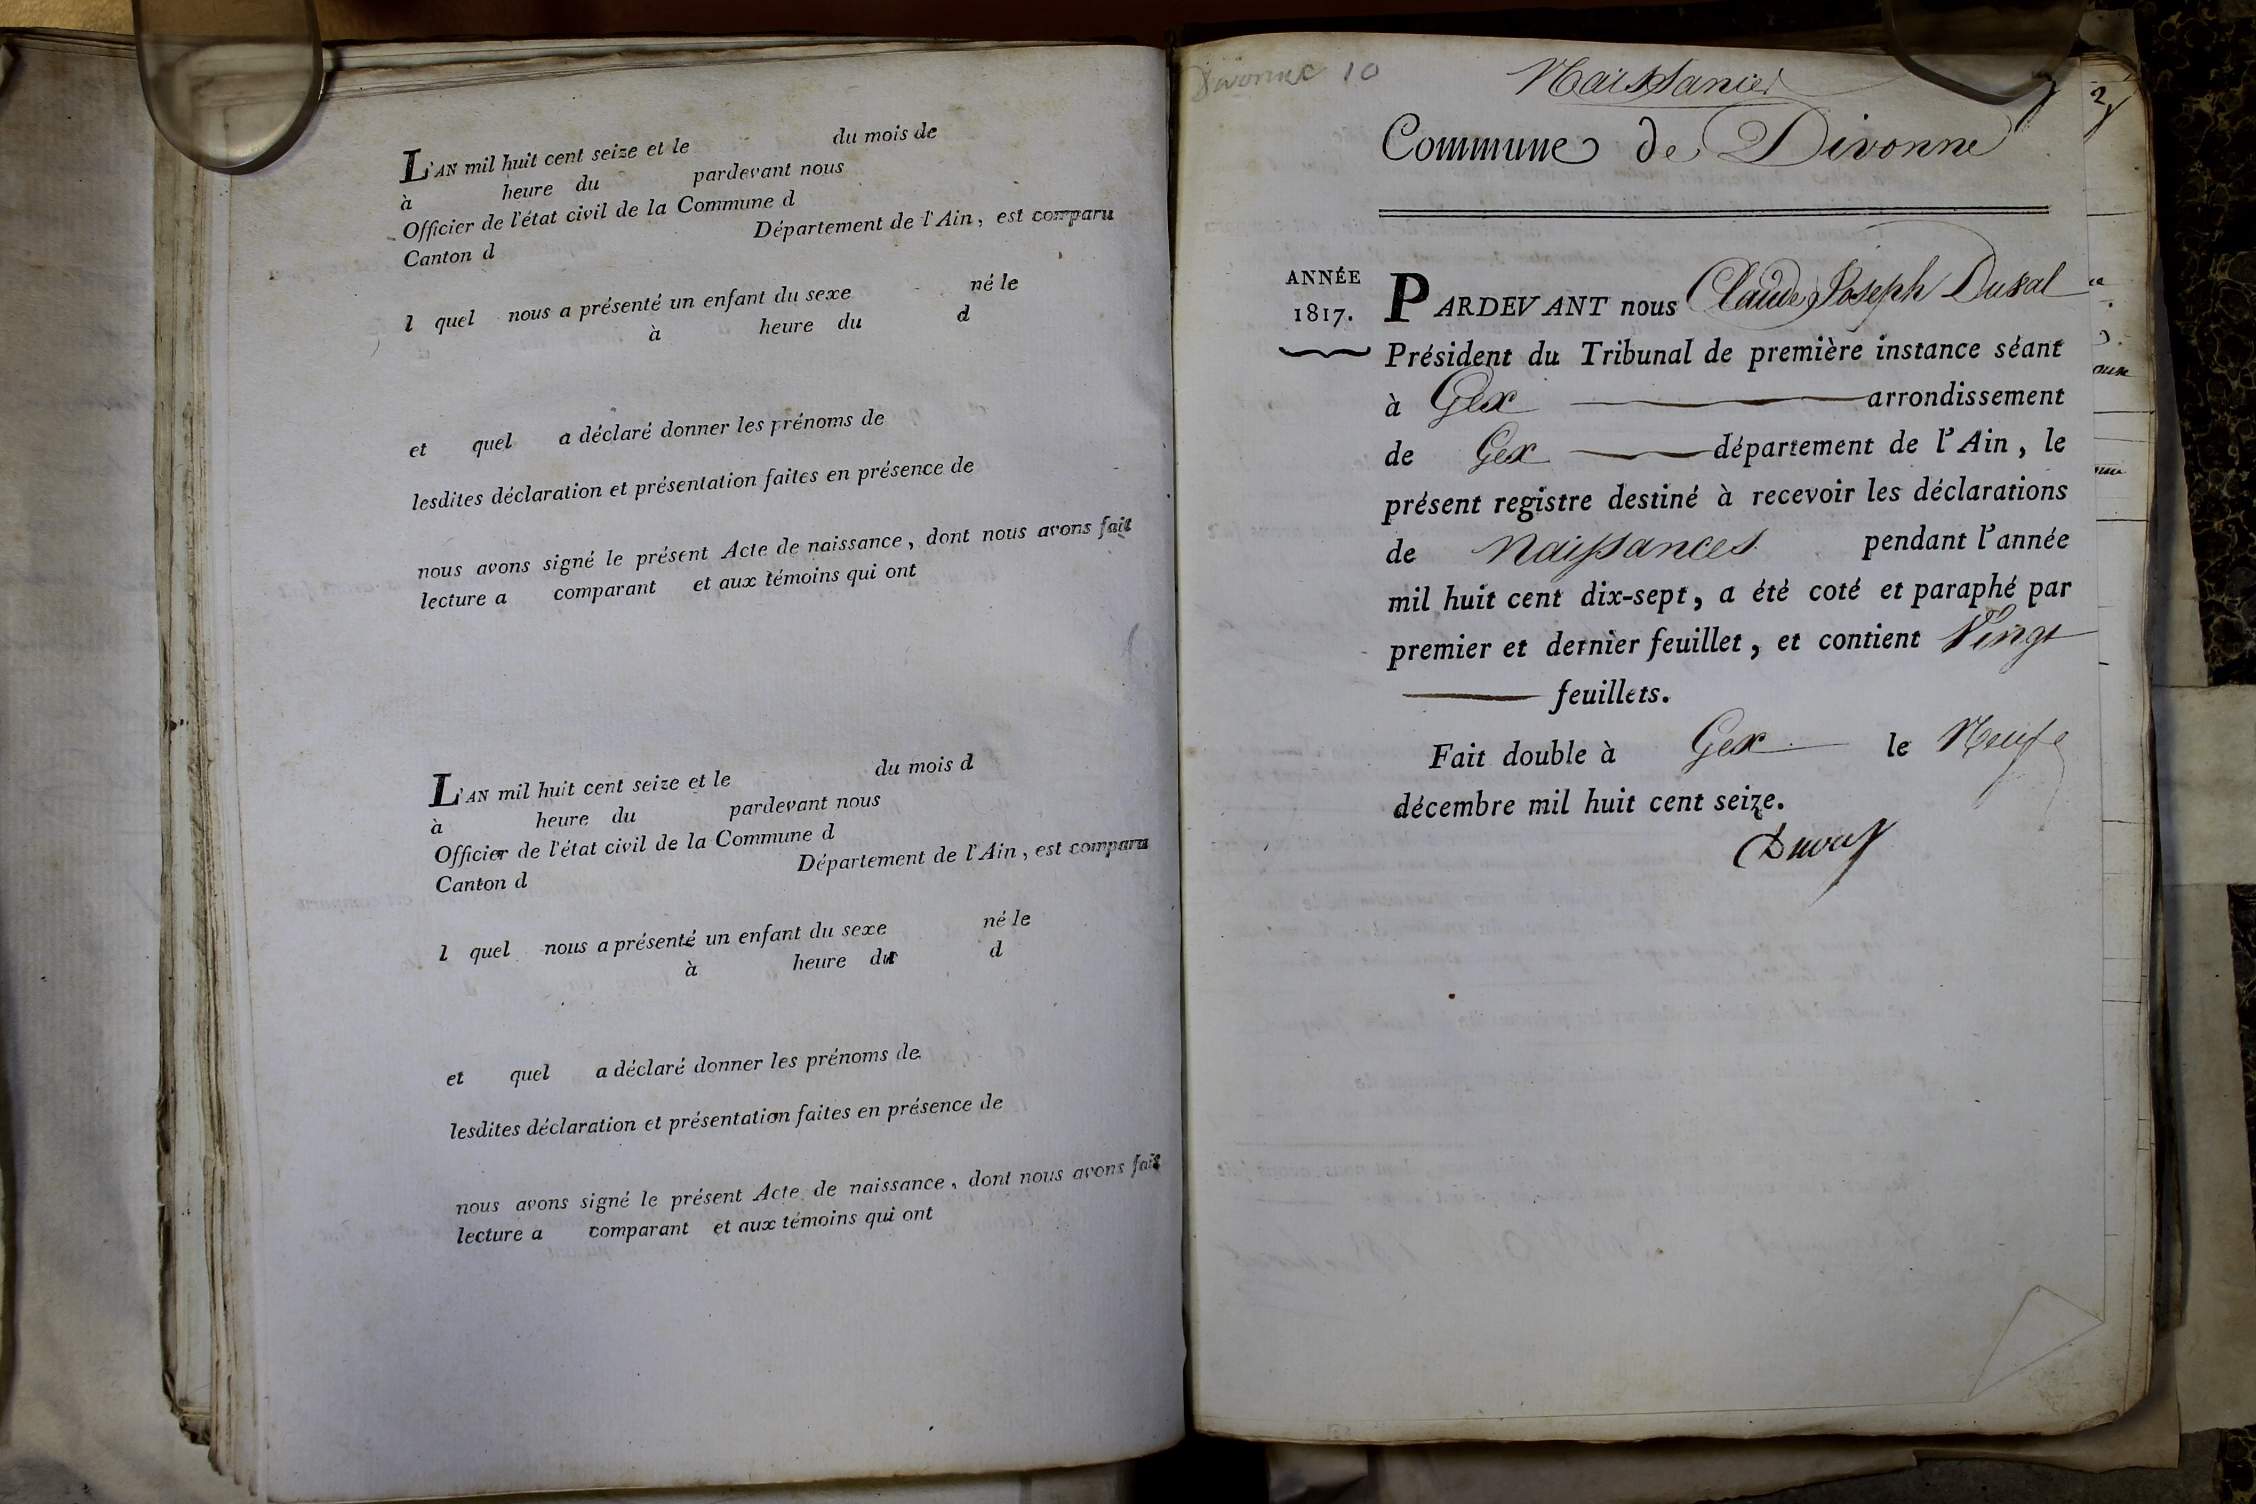 L'AN mil huit cent seize et le du mois de
à heure du pardevant nous
Officier de l'état civil de la Commune d
Canton d Département de l'Ain, est comparu
l quel nous a présenté un enfant du sexe né le
à heure du d
et quel a déclaré donner les prénoms de
lesdites déclaration et présentation faites en présence de
nous avons signé le présent Acte de naissance, dont nous avons fait
lecture a comparant et aux témoins qui ont
L'AN mil huit cent seize et le du mois d
à heure du pardevant nous
Officier de l'état civil de la Commune d
Canton d Département de l'Ain, est comparu
l quel nous a présenté un enfant du sexe né le
à heure du d
et quel a déclaré donner les prénoms de
lesdites déclaration et présentation faites en présence de
nous avons signé le présent Acte de naissance, dont nous avons fait
lecture a comparant et aux témoins qui ont
Divonne 10
Naissances
Commune de Divonne
ANNÉE
1817.
PARDEVANT nous Claude Joseph Duval
Président du Tribunal de première instance séant
à Gex arrondissement
de Gex département de l'Ain, le
présent registre destiné à recevoir les déclarations
de Naissances pendant l'année
mil huit cent dix-sept, a été coté et paraphé par
premier et dernier feuillet, et contient Vingt
feuillets.
Fait double à Gex le Neuf
décembre mil huit cent seize.
Duval